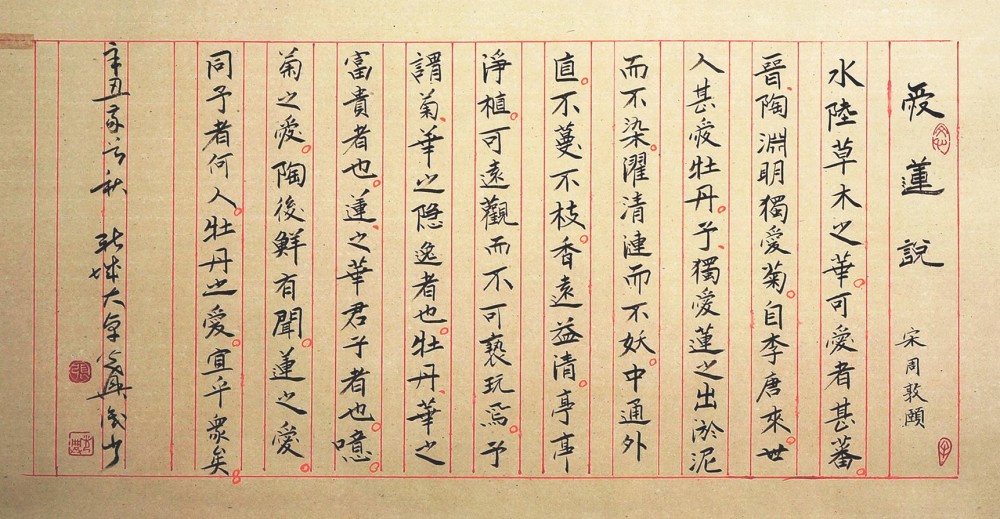 愛蓮說 宋周敦頤
水陸草木之華。可愛者甚蕃。
晉、陶淵明獨愛菊。自李唐來。世
人甚愛牡丹。予、獨愛蓮之出於泥
而不染。濯清漣而不妖。中通外
直。不蔓不枝。香遠益清。亭亭
淨植。可遠觀而不可褻玩焉。予
謂菊、華之隱逸者也。牡丹、華之
富貴者也。蓮、之華君子者也。噫。
菊之愛。陶後鮮有聞。蓮之愛。
同予者何人。牡丹之愛。宜乎衆矣。
辛丑 秋